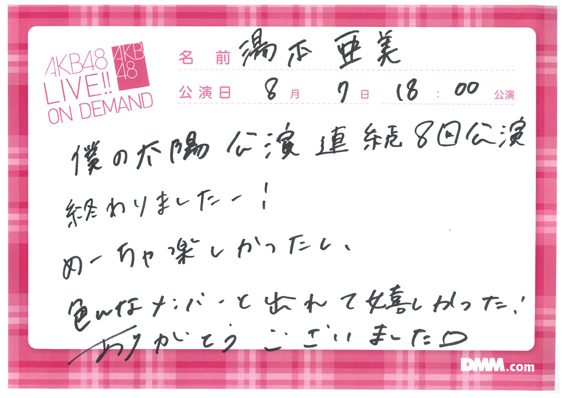 AKB48
LIVE!!
ON DEMAND
AKB
48
名前 湯本 亜美
公演日 8月 7日 18:00 公演
僕の太陽 公演 連続8回公演
終わりましたー!
めーちゃ楽しかったし、
色んなメンバーと出れて嬉しかった!
ありがとうございました♡
DMM.com